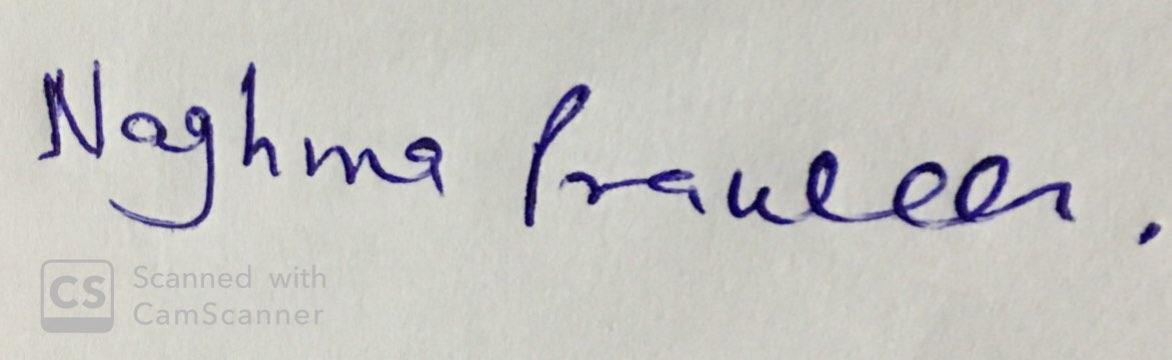 Naghma Praveen.
CS Scanned with
CamScanner